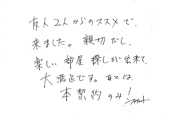 友人2人からのススメで、
来ました。親切だし、
楽しい部屋探しが出来て、
大満足です。あとは
本契約のみ!